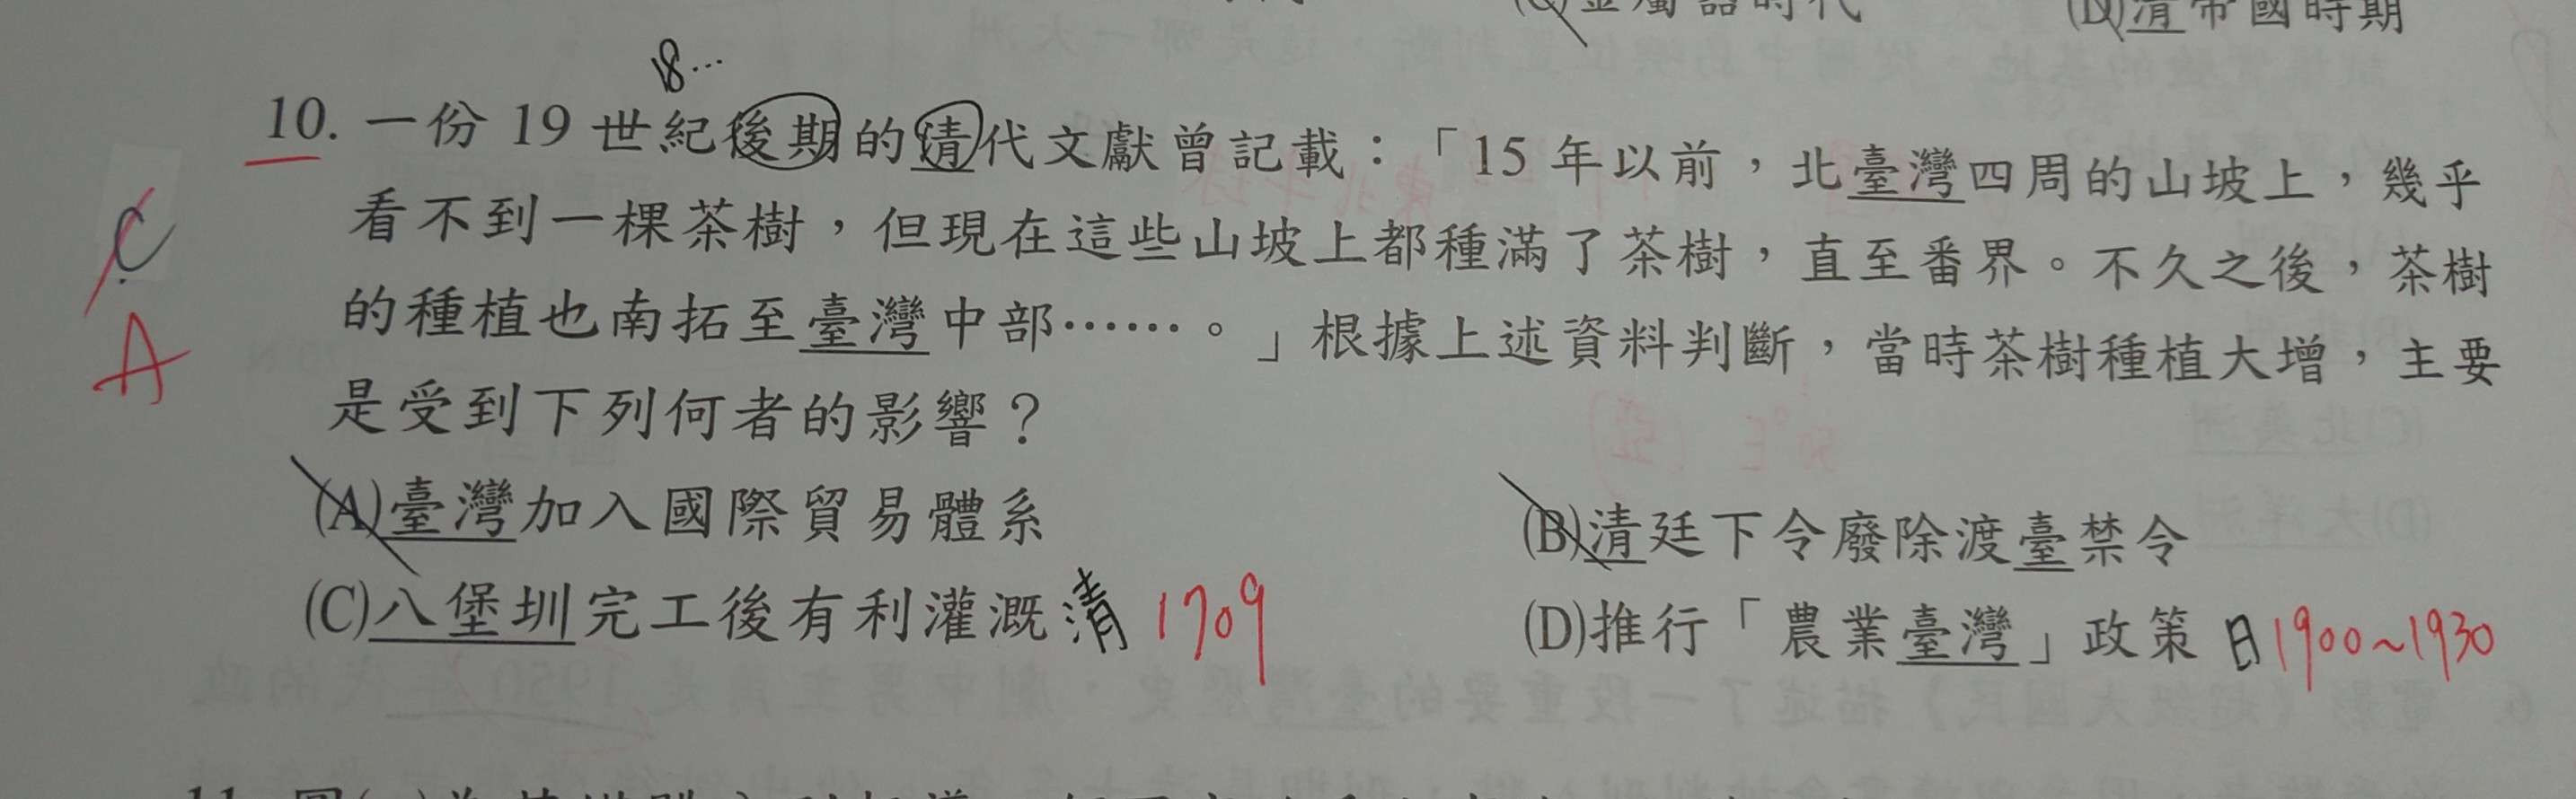 金屬器時代 (D)清帝國時期
18…
10. 一份 19 世紀後期的清代文獻曾記載：「15 年以前，北臺灣四周的山坡上，幾乎
C
看不到一棵茶樹，但現在這些山坡上都種滿了茶樹，直至番界。不久之後，茶樹
A
的種植也南拓至臺灣中部……。」根據上述資料判斷，當時茶樹種植大增，主要
是受到下列何者的影響？
(A)臺灣加入國際貿易體系 (B)清廷下令廢除渡臺禁令
(C)八堡圳完工後有利灌溉 清 1709 (D)推行「農業臺灣」政策 日1900~1930